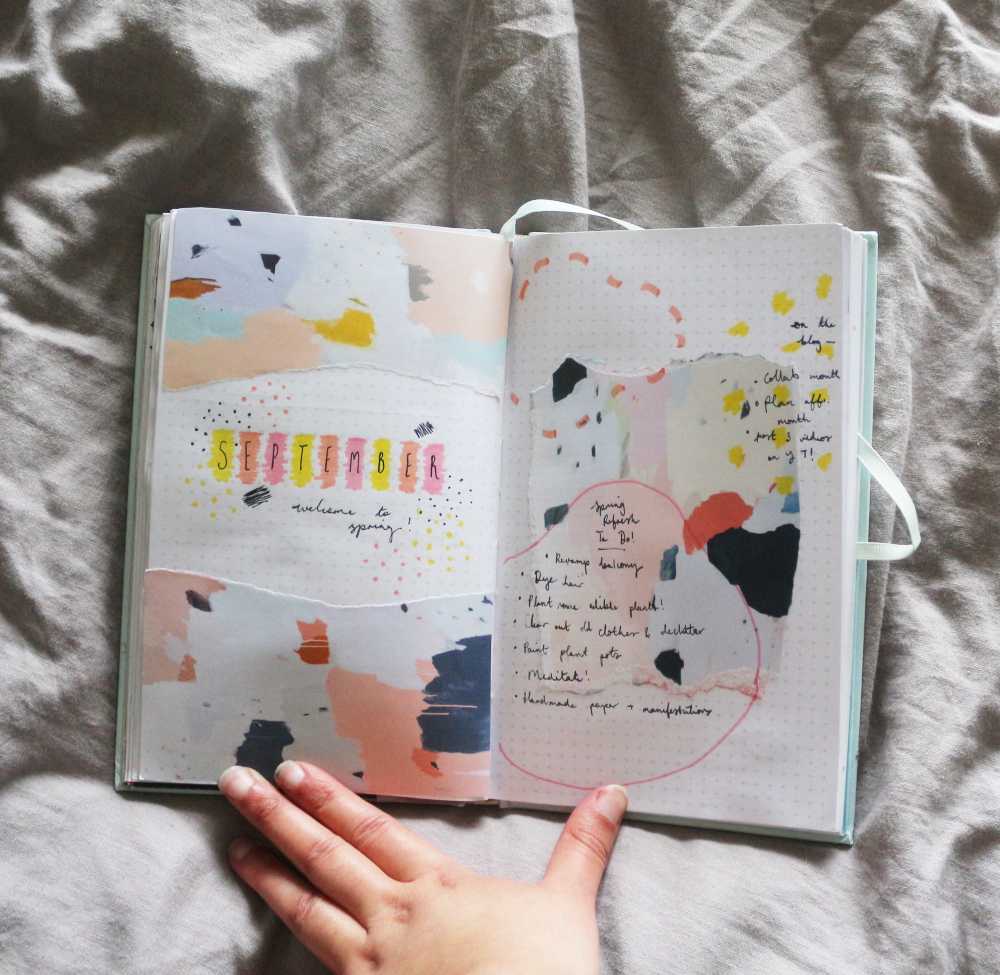 SEPTEMBER
welcome to
spring!
on the
blog —
• Collab month
• Plan aff.
month
• post 3 videos
on YT!
Spring
Refresh
To Do!
• Revamp balcony
• Dye hair
• Plant some edible plants!
• Clear out old clothes & declutter
• Paint plant pots
• Meditate!
• Handmade paper + manifestations